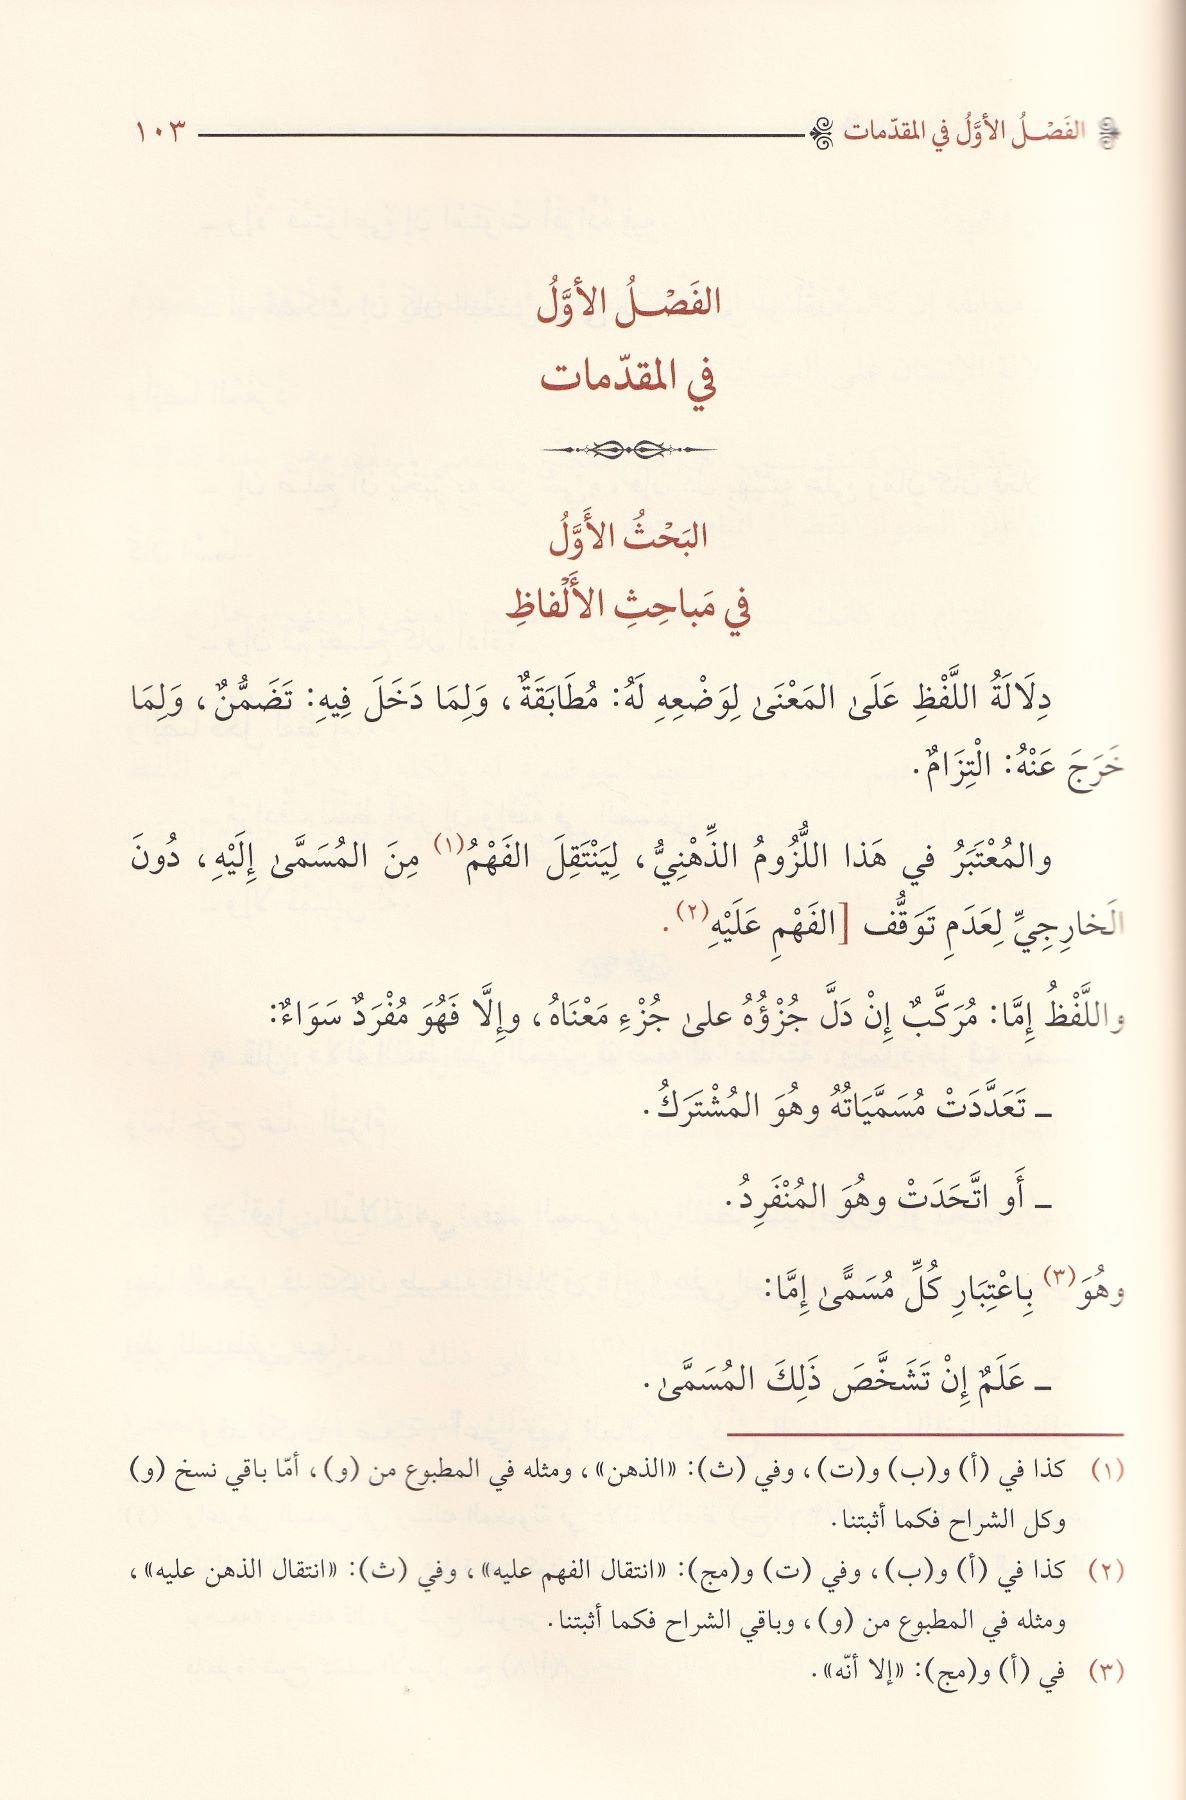 الفَصْلُ الأوَّلُ في المقدّمات ١٠٣
الفَصْلُ الأوَّلُ
في المقدّمات
البَحْثُ الأَوَّلُ
في مَباحِثِ الأَلْفاظِ
دِلَالَةُ اللَّفْظِ عَلَى المَعْنَى لِوَضْعِهِ لَهُ: مُطَابَقَةٌ، وَلِمَا دَخَلَ فِيهِ: تَضَمُّنٌ، وَلِمَا
خَرَجَ عَنْهُ: الْتِزَامٌ.
والمُعْتَبَرُ في هَذا اللُّزُومُ الذِّهْنِيُّ، لِيَنْتَقِلَ الفَهْمُ(١) مِنَ المُسَمَّىٰ إِلَيْهِ، دُونَ
الَخارِجِيِّ لِعَدَمِ تَوَقُّف [الفَهْمِ عَلَيْهِ(٢).
واللَّفْظُ إمَّا: مُرَكَّبٌ إِنْ دَلَّ جُزْؤُهُ علىٰ جُزْءِ مَعْنَاهُ، وإلَّا فَهُوَ مُفْرَدٌ سَوَاءٌ:
ـ تَعَدَّدَتْ مُسَمَّيَاتُهُ وهُوَ المُشْتَرَكُ.
ـ أَو اتَّحَدَتْ وهُوَ المُنْفَرِدُ.
وهُوَ(٣) بِاعْتِبَارِ كُلِّ مُسَمًّىٰ إمَّا:
ـ عَلَمٌ إِنْ تَشَخَّصَ ذَلِكَ المُسَمَّىٰ.
(١) كذا في (أ) و(ب) و(ت)، وفي (ث): «الذهن»، ومثله في المطبوع من (و)، أمّا باقي نسخ (و)
وكل الشراح فكما أثبتنا.
(٢) كذا في (أ) و(ب)، وفي (ت) و(مج): «انتقال الفهم عليه»، وفي (ث): «انتقال الذهن عليه»،
ومثله في المطبوع من (و)، وباقي الشراح فكما أثبتنا.
(٣) في (أ) و(مج): «إلا أنّه».